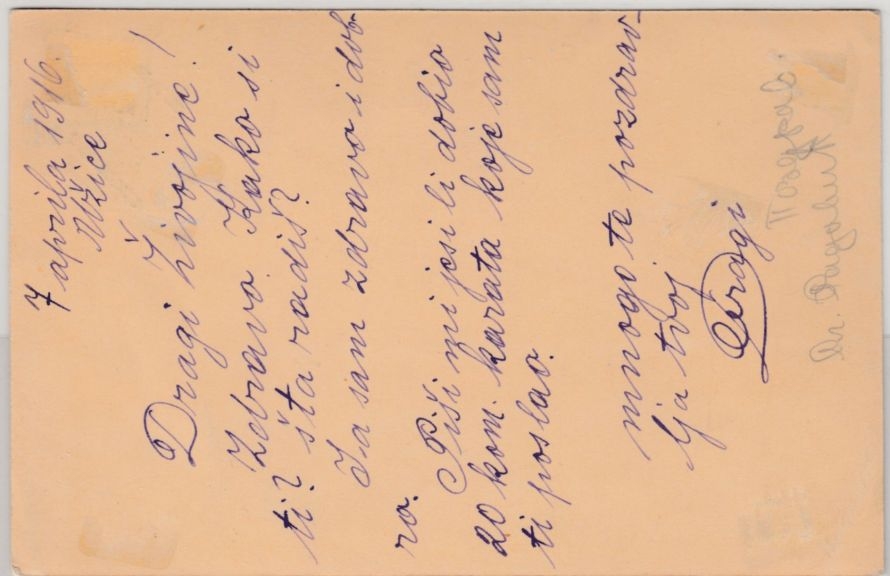 7 aprila 1916.
Užice
Dragi Živojine!
Zdravo. Kako si
ti? šta radiš?
Ja sam zdravo i dob-
ro.
Piši mi jesi li dobio
20 kom. karata koje sam
ti poslao.
mnogo te pozdrav-
lja tvoj
Dragi
Поздрав